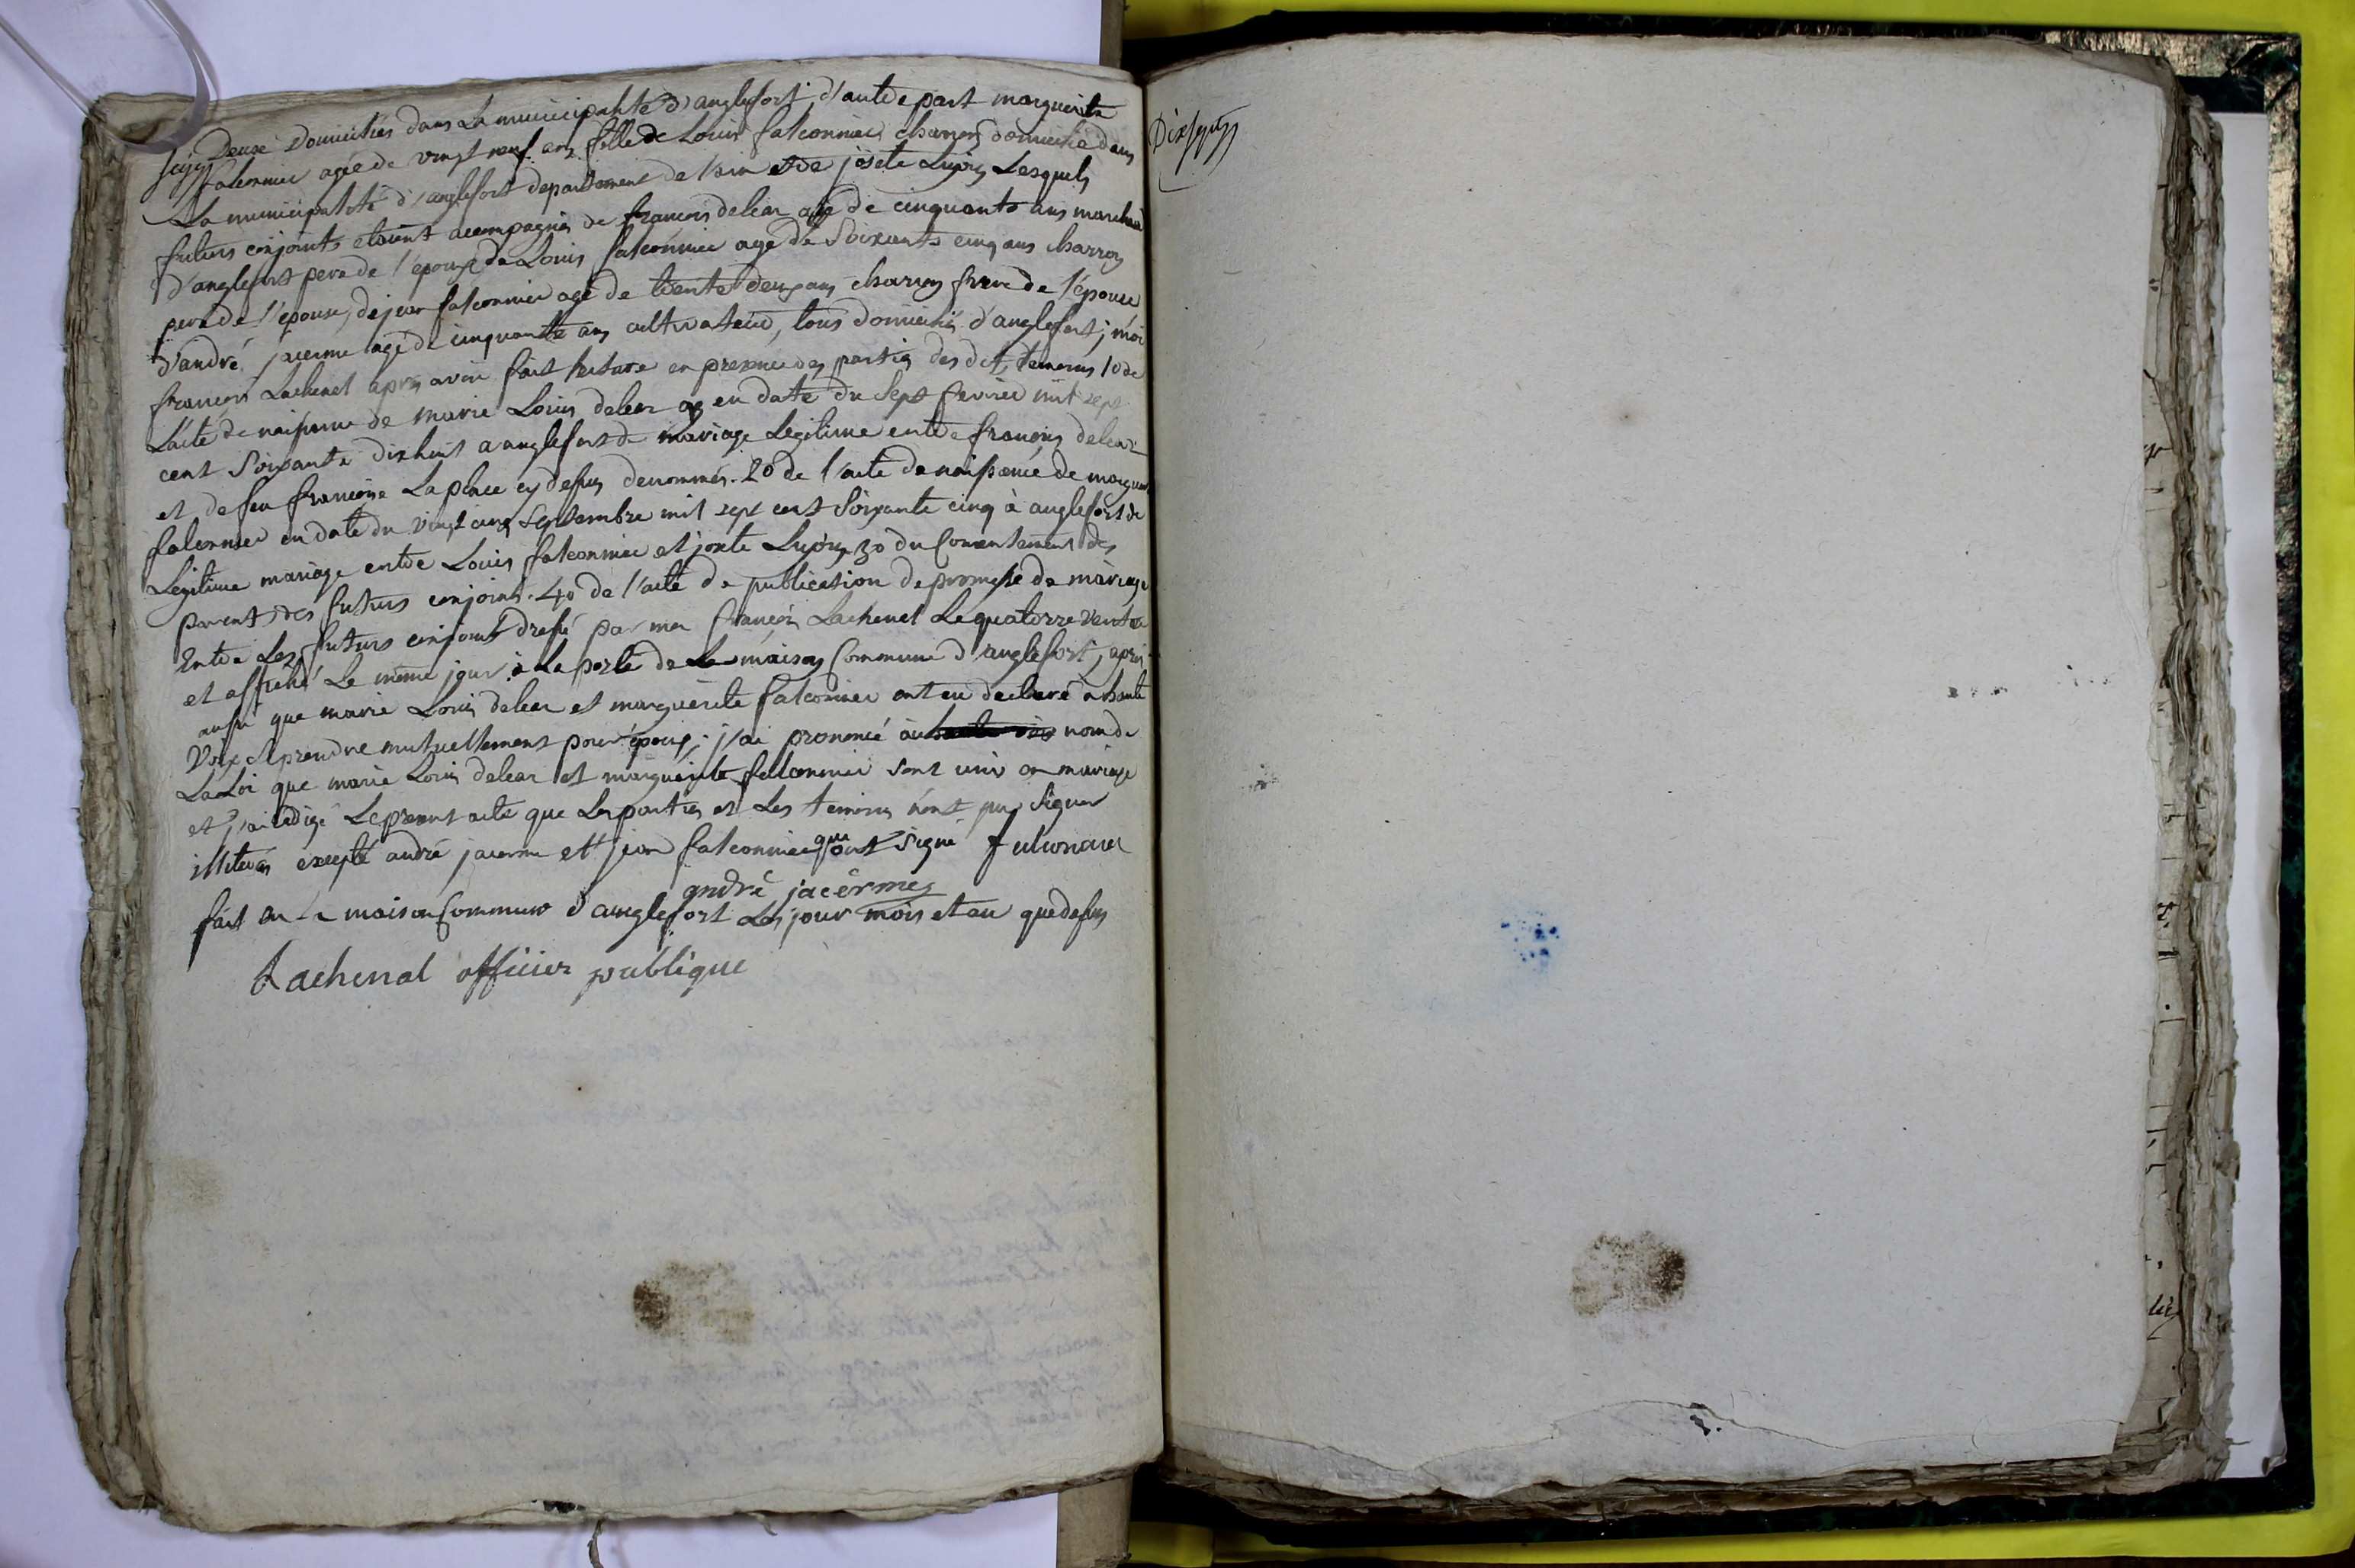 seize
Deuxe Domiciliés dans La municipalité d'anglefort, d'autre part marguerite
falconnier agée de vingt neuf ans fille de Louis falconnier charron domicilié dans
La municipalité d'anglefort departement de l'ain et de josete Lujoz Lesquels
futurs conjoints etoient acompagnés de françois delear agé de cinquante ans marchand
d'anglefort pere de l'epoux de Louis falconnier age de Soixante cinq ans charron
pere de l'epouse, de jean falconnier agé de trente deux ans charron frere de l'épouse
d'andré jacerme agé de cinquante ans cultivateur, tous domiciliés d'anglefort; moi
françois Lachenal apres avoir fait lecture en presence des parties des dit temoins 1o de
L'acte de naissance de marie Louis delear en date du Sept fevrier mil sept
cent Soixante dix huit a anglefort de mariage Légitime entre françois delear
et de feu françoise Laplace cy dessus denommés. 2o de l'acte de naissance de marguerite
falconnier en date du vingt cinq Septembre mil sept cent Soixante cinq à anglefort de
Legitime mariage entre Louis falconnier et josete Lujoz 3o du Consentement des
parents des futurs conjoint. 4o de l'acte de publication de promesse de mariage
Entre Les futurs conjoint dressé par moi françois Lachenal Le quatorze ventose
et affiché Le même jour à La porte de La maison Commune d'anglefort, après
aussi que marie Louis delear et marguerite falconnier ont eu declaré a haute
Voix se prendre mutuellement pour époux; j'ai prononcé au nom de
La Loi que marie Louis delear et marguerite falconnier sont unis en mariage
et j'ai redigé Le present acte que Les parties et Les temoins n'ont pu Signer
illiterés excepté andré jacerme et jean falconnier qui ont signé f ulconaier
andré jacérmez
fait en La maison Commune d'anglefort Les jour mois et an que dessus
Lachenal officier publique
Dixsept